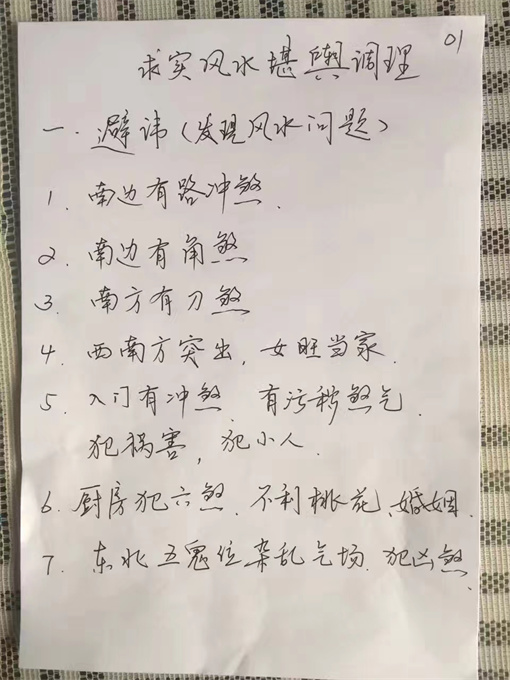 01
求实风水堪舆调理
一．避讳（发现风水问题）
1．南边有路冲煞．
2．南边有角煞
3．南方有刀煞
4．西南方突出，女旺当家．
5．入门有冲煞 有污秽煞气．
犯祸害，犯小人．
6．厨房犯六煞．不利桃花、婚姻．
7．东北五鬼位杂乱气场．犯凶煞、